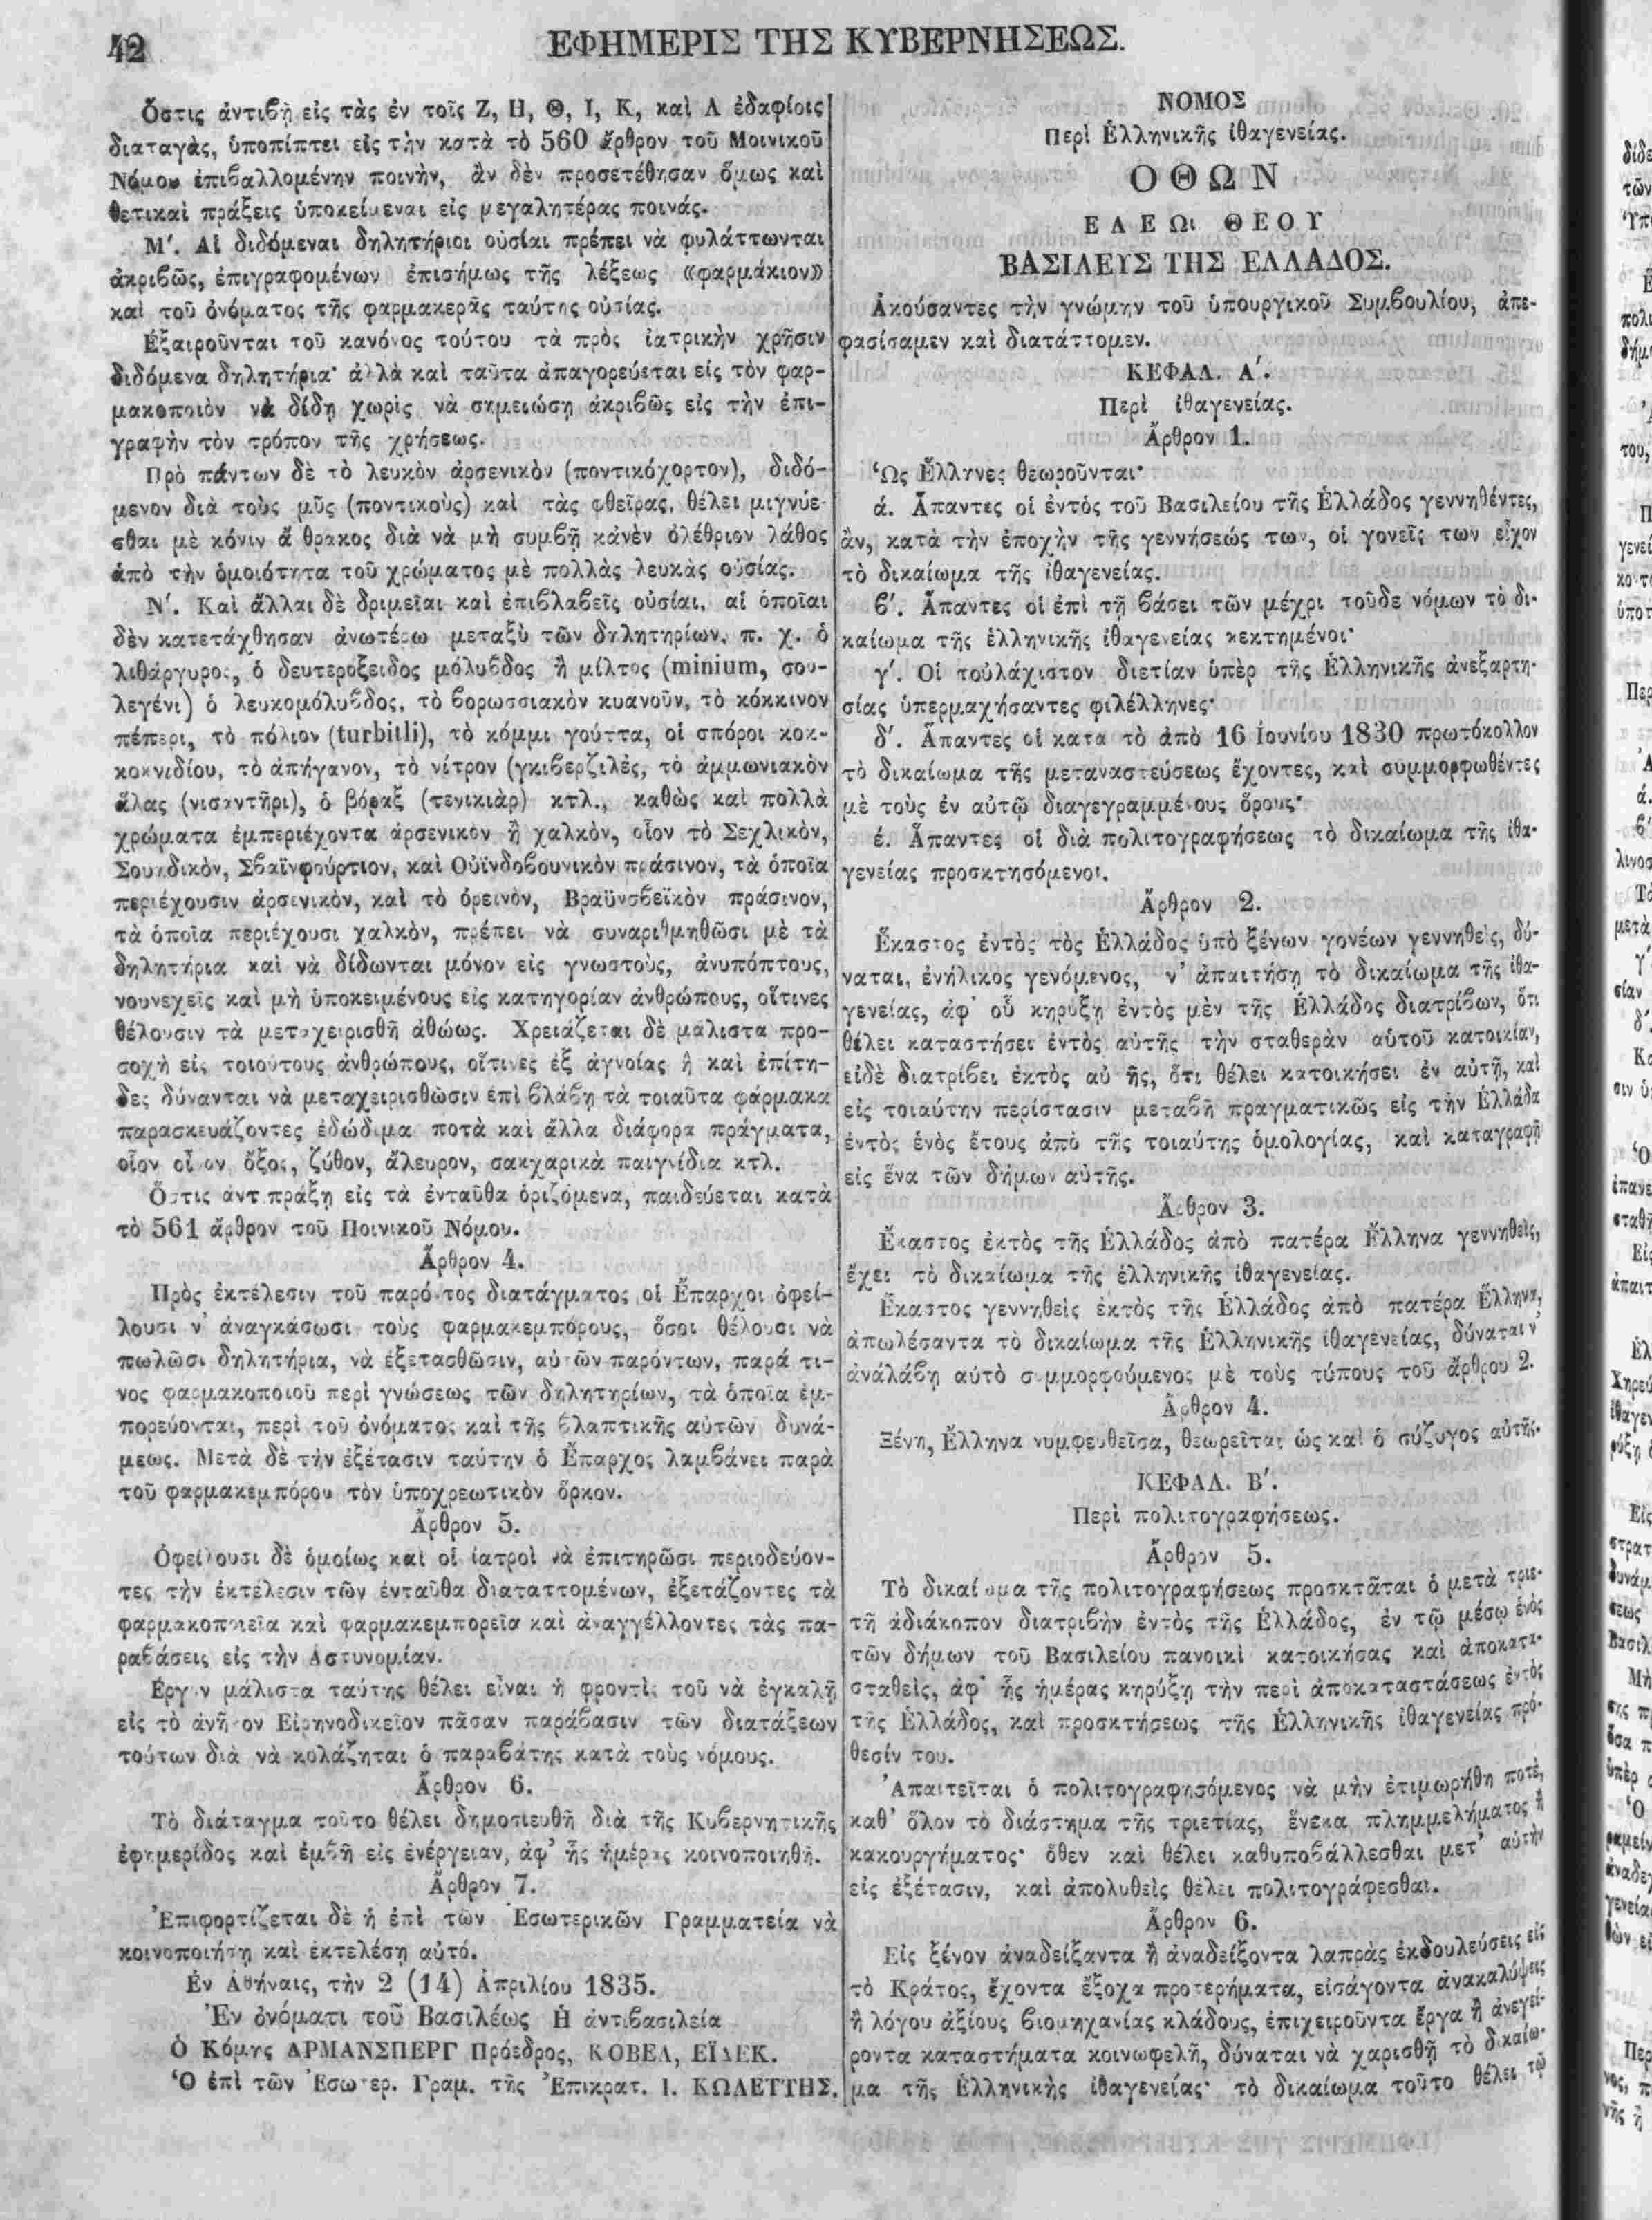 42
ΕΦΗΜΕΡΙΣ ΤΗΣ ΚΥΒΕΡΝΗΣΕΩΣ.
Ὅστις ἀντιβῇ εἰς τὰς ἐν τοῖς Ζ, Η, Θ, Ι, Κ, καὶ Λ ἐδαφίοις
διαταγὰς, ὑποπίπτει εἰς τὴν κατὰ τὸ 560 ἄρθρον τοῦ Μοινικοῦ
Νόμου ἐπιβαλλομένην ποινὴν, ἂν δὲν προσετέθησαν ὅμως καὶ
θετικαὶ πράξεις ὑποκείμεναι εἰς μεγαλητέρας ποινάς.
Μʹ. Αἱ διδόμεναι δηλητήριοι οὐσίαι πρέπει νὰ φυλάττωνται
ἀκριβῶς, ἐπιγραφομένων ἐπισήμως τῆς λέξεως «φαρμάκιον»
καὶ τοῦ ὀνόματος τῆς φαρμακερᾶς ταύτης οὐσίας.
Ἐξαιροῦνται τοῦ κανόνος τούτου τὰ πρὸς ἰατρικὴν χρῆσιν
διδόμενα δηλητήρια· ἀλλὰ καὶ ταῦτα ἀπαγορεύεται εἰς τὸν φαρ-
μακοποιὸν νὰ δίδῃ χωρὶς νὰ σημειώσῃ ἀκριβῶς εἰς τὴν ἐπι-
γραφὴν τὸν τρόπον τῆς χρήσεως.
Πρὸ πάντων δὲ τὸ λευκὸν ἀρσενικὸν (ποντικόχορτον), διδό-
μενον διὰ τοὺς μῦς (ποντικοὺς) καὶ τὰς φθεῖρας, θέλει μιγνύε-
σθαι μὲ κόνιν ἄνθρακος διὰ νὰ μὴ συμβῇ κἀνὲν ὀλέθριον λάθος
ἀπὸ τὴν ὁμοιότητα τοῦ χρώματος μὲ πολλὰς λευκὰς οὐσίας.
Νʹ. Καὶ ἄλλαι δὲ δριμεῖαι καὶ ἐπιβλαβεῖς οὐσίαι, αἱ ὁποῖαι
δὲν κατετάχθησαν ἀνωτέρω μεταξὺ τῶν δηλητηρίων, π. χ. ὁ
λιθάργυρος, ὁ δευτεροξειδος μόλυβδος ἢ μίλτος (minium, σου-
λεγένι) ὁ λευκομόλυβδος, τὸ βορωσσιακὸν κυανοῦν, τὸ κόκκινον
πέπερι, τὸ πόλιον (turbitli), τὸ κόμμι γούττα, οἱ σπόροι κοκ-
κοκνιδίου, τὸ ἀπήγανον, τὸ νίτρον (γκιβερζιλὲς, τὸ ἀμμωνιακὸν
ἅλας (νισαντῆρι), ὁ βόραξ (τενικιὰρ) κτλ., καθὼς καὶ πολλὰ
χρώματα ἐμπεριέχοντα ἀρσενικὸν ἢ χαλκὸν, οἷον τὸ Σεχλικὸν,
Σουηδικὸν, Σβαϊνφούρτιον, καὶ Οὐϊνδοβουνικὸν πράσινον, τὰ ὁποῖα
περιέχουσιν ἀρσενικὸν, καὶ τὸ ὀρεινὸν, Βραϋνσβεϊκὸν πράσινον,
τὰ ὁποῖα περιέχουσι χαλκὸν, πρέπει νὰ συναριθμηθῶσι μὲ τὰ
δηλητήρια καὶ νὰ δίδωνται μόνον εἰς γνωστοὺς, ἀνυπόπτους,
νουνεχεῖς καὶ μὴ ὑποκειμένους εἰς κατηγορίαν ἀνθρώπους, οἵτινες
θέλουσιν τὰ μεταχειρισθῆ ἀθώως. Χρειάζεται δὲ μάλιστα προ-
σοχὴ εἰς τοιούτους ἀνθρώπους, οἵτινες ἐξ ἀγνοίας ἢ καὶ ἐπίτη-
δες δύνανται νὰ μεταχειρισθῶσιν ἐπὶ βλάβῃ τὰ τοιαῦτα φάρμακα
παρασκευάζοντες ἐδώδιμα ποτὰ καὶ ἄλλα διάφορα πράγματα,
οἷον οἶνον, ὄξος, ζύθον, ἄλευρον, σακχαρικὰ παιγνίδια κτλ.
Ὅστις ἀντιπράξῃ εἰς τὰ ἐνταῦθα ὁριζόμενα, παιδεύεται κατὰ
τὸ 561 ἄρθρον τοῦ Ποινικοῦ Νόμου.
Ἄρθρον 4.
Πρὸς ἐκτέλεσιν τοῦ παρόντος διατάγματος οἱ Ἔπαρχοι ὀφεί-
λουσι ν' ἀναγκάσωσι τοὺς φαρμακεμπόρους, ὅσοι θέλουσι νὰ
πωλῶσι δηλητήρια, νὰ ἐξετασθῶσιν, αὐτῶν παρόντων, παρά τι-
νος φαρμακοποιοῦ περὶ γνώσεως τῶν δηλητηρίων, τὰ ὁποῖα ἐμ-
πορεύονται, περὶ τοῦ ὀνόματος καὶ τῆς βλαπτικῆς αὐτῶν δυνά-
μεως. Μετὰ δὲ τὴν ἐξέτασιν ταύτην ὁ Ἔπαρχος λαμβάνει παρὰ
τοῦ φαρμακεμπόρου τὸν ὑποχρεωτικὸν ὅρκον.
Ἄρθρον 5.
Ὀφείλουσι δὲ ὁμοίως καὶ οἱ ἰατροὶ νὰ ἐπιτηρῶσι περιοδεύον-
τες τὴν ἐκτέλεσιν τῶν ἐνταῦθα διαταττομένων, ἐξετάζοντες τὰ
φαρμακοποιεῖα καὶ φαρμακεμπορεῖα καὶ ἀναγγέλλοντες τὰς πα-
ραβάσεις εἰς τὴν Ἀστυνομίαν.
Ἔργον μάλιστα ταύτης θέλει εἶναι ἡ φροντὶς τοῦ νὰ ἐγκαλῇ
εἰς τὸ ἀνῆκον Εἰρηνοδικεῖον πᾶσαν παράβασιν τῶν διατάξεων
τούτων διὰ νὰ κολάζηται ὁ παραβάτης κατὰ τοὺς νόμους.
Ἄρθρον 6.
Τὸ διάταγμα τοῦτο θέλει δημοσιευθῆ διὰ τῆς Κυβερνητικῆς
ἐφημερίδος καὶ ἐμβῆ εἰς ἐνέργειαν, ἀφ' ἧς ἡμέρας κοινοποιηθῇ.
Ἄρθρον 7.
Ἐπιφορτίζεται δὲ ἡ ἐπὶ τῶν Ἐσωτερικῶν Γραμματεία νὰ
κοινοποιήσῃ καὶ ἐκτελέσῃ αὐτό.
Ἐν Ἀθήναις, τὴν 2 (14) Ἀπριλίου 1835.
Ἐν ὀνόματι τοῦ Βασιλέως Ἡ ἀντιβασιλεία
Ὁ Κόμης ΑΡΜΑΝΣΠΕΡΓ Πρόεδρος, ΚΟΒΕΛ, ΕΪΔΕΚ.
Ὁ ἐπὶ τῶν Ἐσωτερ. Γραμ. τῆς Ἐπικρατ. Ι. ΚΩΛΕΤΤΗΣ.
ΝΟΜΟΣ
Περὶ Ἑλληνικῆς ἰθαγενείας.
ΟΘΩΝ
ΕΛΕΩι ΘΕΟΥ
ΒΑΣΙΛΕΥΣ ΤΗΣ ΕΛΛΑΔΟΣ.
Ἀκούσαντες τὴν γνώμην τοῦ ὑπουργικοῦ Συμβουλίου, ἀπε-
φασίσαμεν καὶ διατάττομεν.
ΚΕΦΑΛ. Αʹ.
Περὶ ἰθαγενείας.
Ἄρθρον 1.
Ὡς Ἕλληνες θεωροῦνται·
ά. Ἅπαντες οἱ ἐντὸς τοῦ Βασιλείου τῆς Ἑλλάδος γεννηθέντες,
ἂν, κατὰ τὴν ἐποχὴν τῆς γεννήσεώς των, οἱ γονεῖς των εἶχον
τὸ δικαίωμα τῆς ἰθαγενείας.
βʹ. Ἅπαντες οἱ ἐπὶ τῇ βάσει τῶν μέχρι τοῦδε νόμων τὸ δι-
καίωμα τῆς ἑλληνικῆς ἰθαγενείας κεκτημένοι·
γʹ. Οἱ τοὐλάχιστον διετίαν ὑπὲρ τῆς Ἑλληνικῆς ἀνεξαρτη-
σίας ὑπερμαχήσαντες φιλέλληνες·
δʹ. Ἅπαντες οἱ κατὰ τὸ ἀπὸ 16 Ἰουνίου 1830 πρωτόκολλον
τὸ δικαίωμα τῆς μεταναστεύσεως ἔχοντες, καὶ συμμορφωθέντες
μὲ τοὺς ἐν αὐτῷ διαγεγραμμένους ὅρους·
έ. Ἅπαντες οἱ διὰ πολιτογραφήσεως τὸ δικαίωμα τῆς ἰθα-
γενείας προσκτησόμενοι.
Ἄρθρον 2.
Ἕκαστος ἐντὸς τὸς Ἑλλάδος ὑπὸ ξένων γονέων γεννηθεὶς, δύ-
ναται, ἐνήλικος γενόμενος, ν' ἀπαιτήσῃ τὸ δικαίωμα τῆς ἰθα-
γενείας, ἀφ' οὗ κηρύξῃ ἐντὸς μὲν τῆς Ἑλλάδος διατρίβων, ὅτι
θέλει καταστήσει ἐντὸς αὐτῆς τὴν σταθερὰν αὑτοῦ κατοικίαν,
εἰδὲ διατρίβει ἐκτὸς αὐτῆς, ὅτι θέλει κατοικήσει ἐν αὐτῇ, καὶ
εἰς τοιαύτην περίστασιν μεταβῇ πραγματικῶς εἰς τὴν Ἑλλάδα
ἐντὸς ἑνὸς ἔτους ἀπὸ τῆς τοιαύτης ὁμολογίας, καὶ καταγραφῇ
εἰς ἕνα τῶν δήμων αὐτῆς.
Ἄρθρον 3.
Ἕκαστος ἐκτὸς τῆς Ἑλλάδος ἀπὸ πατέρα Ἕλληνα γεννηθεὶς,
ἔχει τὸ δικαίωμα τῆς ἑλληνικῆς ἰθαγενείας.
Ἕκαστος γεννηθεὶς ἐκτὸς τῆς Ἑλλάδος ἀπὸ πατέρα Ἕλληνα,
ἀπωλέσαντα τὸ δικαίωμα τῆς Ἑλληνικῆς ἰθαγενείας, δύναται ν'
ἀναλάβῃ αὐτὸ συμμορφούμενος μὲ τοὺς τύπους τοῦ ἄρθρου 2.
Ἄρθρον 4.
Ξένη, Ἕλληνα νυμφευθεῖσα, θεωρεῖται ὡς καὶ ὁ σύζυγος αὐτῆς.
ΚΕΦΑΛ. Βʹ.
Περὶ πολιτογραφήσεως.
Ἄρθρον 5.
Τὸ δικαίωμα τῆς πολιτογραφήσεως προσκτᾶται ὁ μετὰ τριε-
τῆ ἀδιάκοπον διατριβὴν ἐντὸς τῆς Ἑλλάδος, ἐν τῷ μέσῳ ἑνὸς
τῶν δήμων τοῦ Βασιλείου πανοικὶ κατοικήσας καὶ ἀποκατα-
σταθεὶς, ἀφ' ἧς ἡμέρας κηρύξῃ τὴν περὶ ἀποκαταστάσεως ἐντὸς
τῆς Ἑλλάδος, καὶ προσκτήσεως τῆς Ἑλληνικῆς ἰθαγενείας πρό-
θεσίν του.
Ἀπαιτεῖται ὁ πολιτογραφησόμενος νὰ μὴν ἐτιμωρήθη ποτὲ,
καθ' ὅλον τὸ διάστημα τῆς τριετίας, ἕνεκα πλημμελήματος ἢ
κακουργήματος· ὅθεν καὶ θέλει καθυποβάλλεσθαι μετ' αὐτὴν
εἰς ἐξέτασιν, καὶ ἀπολυθεὶς θέλει πολιτογράφεσθαι.
Ἄρθρον 6.
Εἰς ξένον ἀναδείξαντα ἢ ἀναδείξοντα λαπρὰς ἐκδουλεύσεις εἰς
τὸ Κράτος, ἔχοντα ἔξοχα προτερήματα, εἰσάγοντα ἀνακαλύψεις
ἢ λόγου ἀξίους βιομηχανίας κλάδους, ἐπιχειροῦντα ἔργα ἢ ἀνεγεί-
ροντα καταστήματα κοινωφελῆ, δύναται νὰ χαρισθῇ τὸ δικαίω-
μα τῆς Ἑλληνικῆς ἰθαγενείας· τὸ δικαίωμα τοῦτο θέλει τῷ